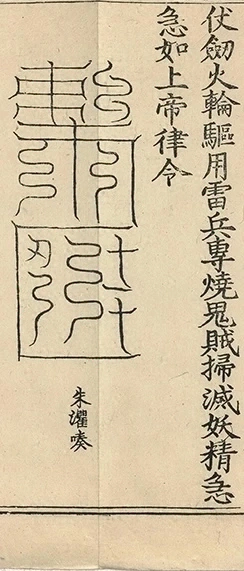 伏劒火輪驅用雷兵專燒鬼賊掃滅妖精急
急如上帝律令
朱灈奏